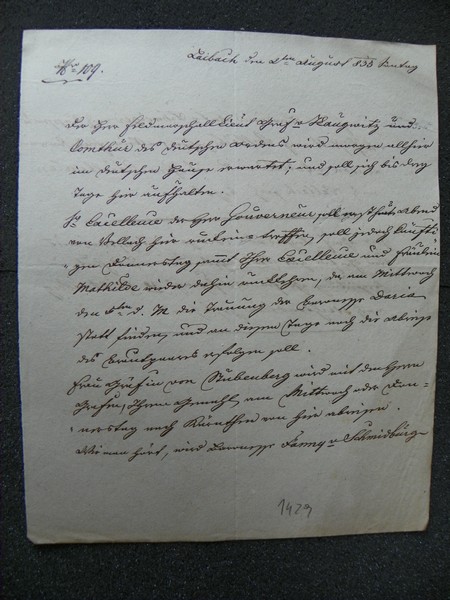 No 109.
Laibach den 2ten August 838 Sontag
Der Herr Feldmarschall Lieut Graf v Haugwitz und
Comthur des deutschen Ordens wird morgen allhier
im deutschen Hause erwartet; und soll sich bis drey
Tage hier aufhalten.
Se Excellenz der Herr Gouverneur soll erst heut Abend
von Vellach hier eintreffen, soll jedoch künfti-
gen Donnerstag samt Ihrer Excellenz und Fräulein
Mathilde wieder dahin rückkehren, da am Mittwoch
den d. M die Trauung der Baronesse Daria
statt finden, und an diesem Tage noch die Abreise
des Brautpaares erfolgen soll.
Frau Gräfin von Stubenberg wird mit dem Herrn
Grafen, Ihrem Gemahl, am Mittwoch oder Don-
nerstag nach Kärnthen von hier abreisen.
Wie man hört, wird Baronesse Fanny v Schmidburg
1429